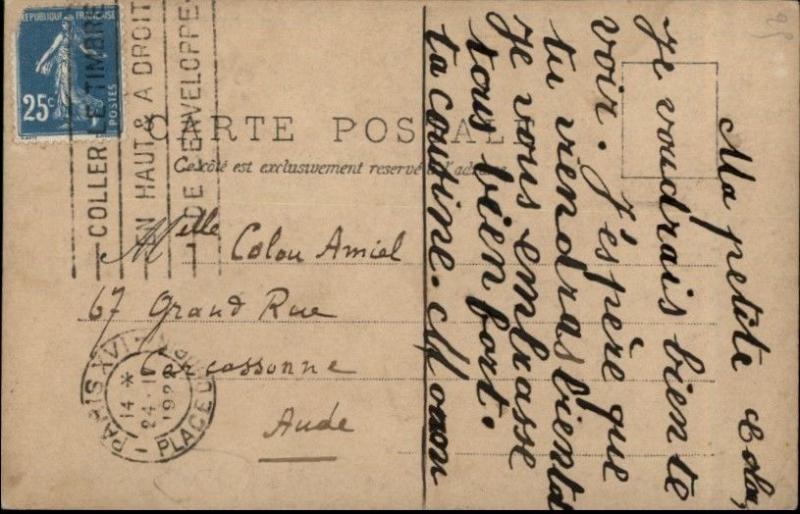 RÉPUBLIQUE FRANÇAISE
25c
POSTES
COLLER LE TIMBRE
EN HAUT & A DROITE
DE L'ENVELOPPE
CARTE POSTALE
Ce côté est exclusivement reservé à l'adresse
Mlle Colou Amiel
67 Grand Rue
Carcassonne
Aude
PARIS XVI
14 *
24
PLACE
Ma petite
Je voudrais bien te
voir. J'éspère que
tu viendras bientot
Je vous embrasse
tous bien fort.
ta cousine.
25